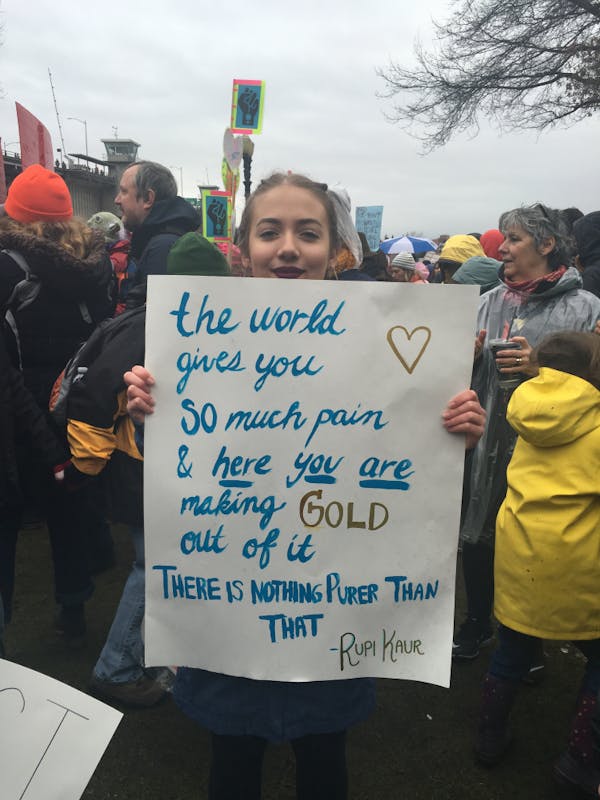 the world
gives you
so much pain
& here you are
making GOLD
out of it
THERE IS NOTHING PURER THAN
THAT
-RUPI KAUR